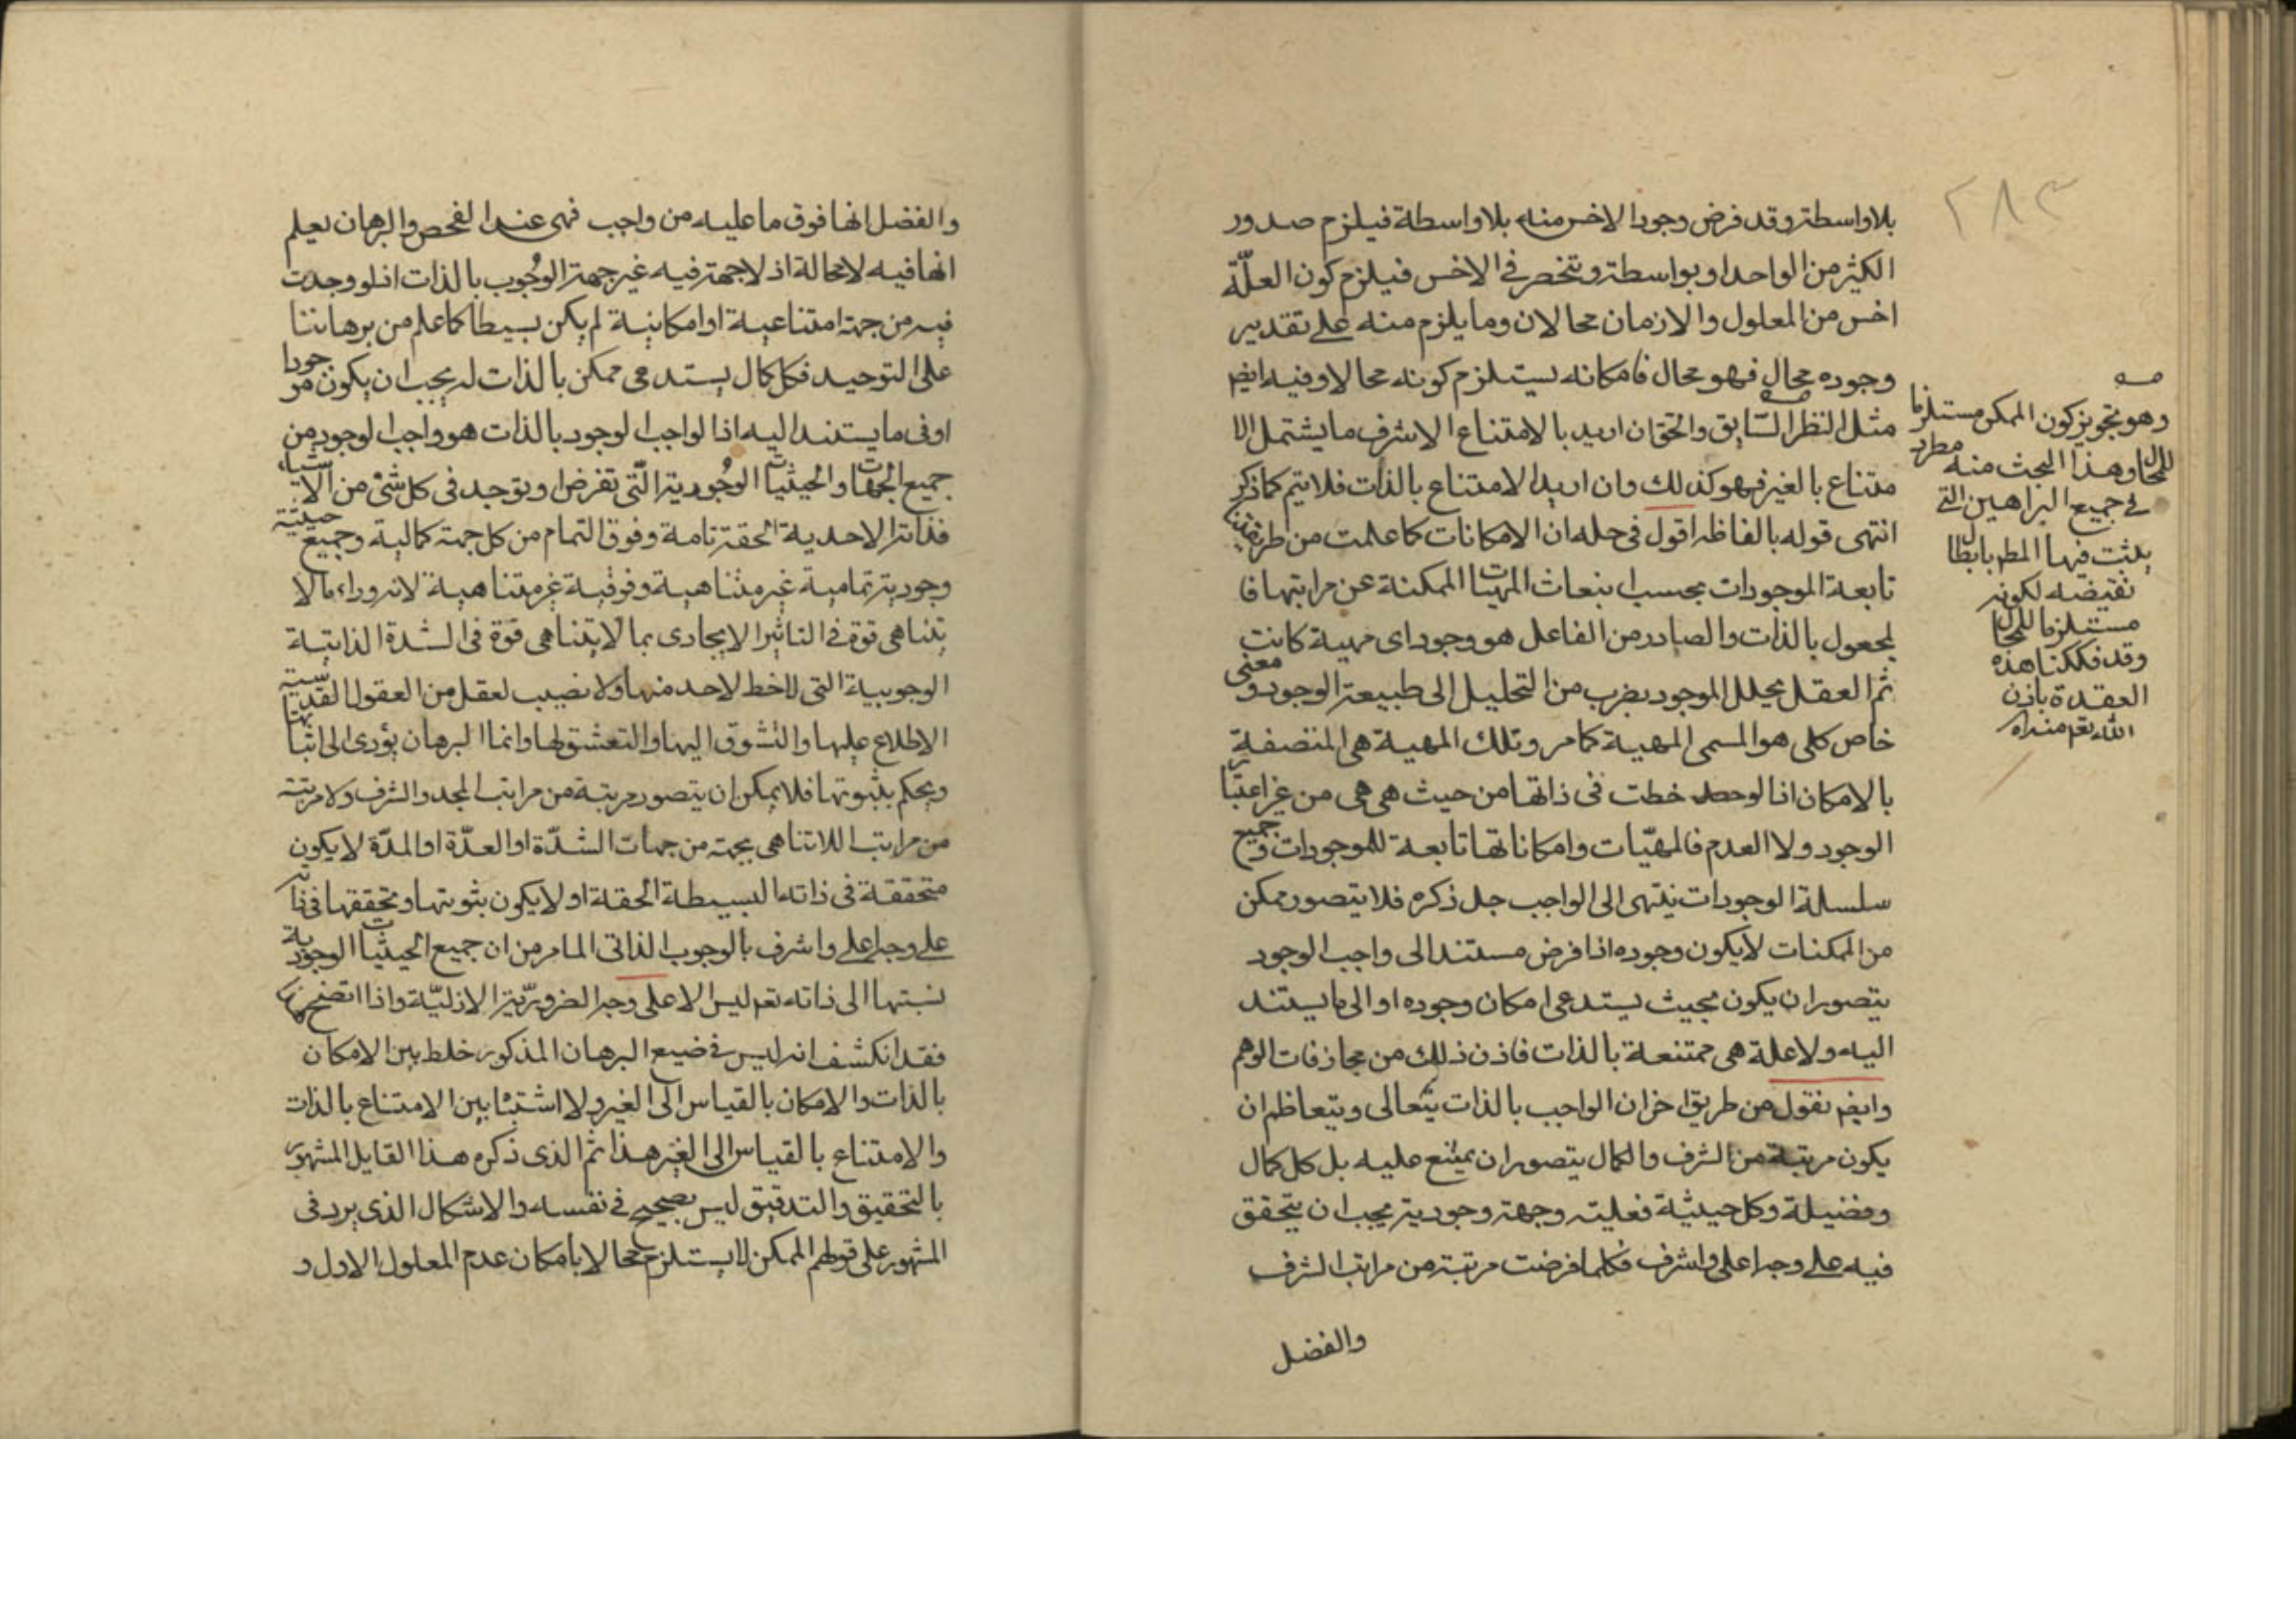 ٢٨٣
بلا واسطة وقد فرض وجود الاخس منه بلا واسطة فيلزم صدور
الكثير من الواحد او بواسطة وتنحصر فى الاخس فيلزم كون العلّة
اخس من المعلول والازمان محالان وما يلزم منه على تقدير
وجوده محال فهو محال فامكانه يستلزم كونه محالا وفيه ايضا
مثل النظر السّابق والحق ان اريد بالامتناع الاشرف ما يشتمل الا
متناع بالغير فهو كذلك وان اريد الامتناع بالذات فلا يتم كما ذكر
انتهى قوله بالفاظه اقول فى حله ان الامكانات كما علمت من طريقتنا
تابعة الموجودات بحسب انبعاث المهيات الممكنة عن مراتبها فا
لمجعول بالذات والصادر من الفاعل هو وجود اى مهية كانت
ثم العقل يحلل الموجود بضرب من التحليل الى طبيعة الوجود ومعنى
خاص كلى هو المسمى المهية كما مر وتلك المهية هى المتصفة
بالامكان اذا لوحظت فى ذاتها من حيث هى هى من غير اعتبار
الوجود ولا العدم فالمهيّات وامكاناتها تابعة للموجودات وجميع
سلسلة الوجودات ينتهى الى الواجب جل ذكره فلا يتصور ممكن
من الممكنات لا يكون وجوده اذا فرض مستندا الى واجب الوجود
يتصور ان يكون بحيث يستدعى امكان وجوده او الى ما يستند
اليه ولا علة هى ممتنعة بالذات فاذن ذلك من مجازفات الوهم
وايضا نقول من طريق اخر ان الواجب بالذات يتعالى ويتعاظم ان
يكون مرتبة من الشرف والكمال يتصور ان يمتنع عليه بل كل كمال
وفضيلة وكل حيثية فعلية وجهة وجودية يجب ان يتحقق
فيه على وجه اعلى واشرف فكلما فرضت مرتبة من مراتب الشرف
والفضل
وهو تجويز كون الممكن مستلزما
للمحال وهذا البحث منه مطرد
فى جميع البراهين التى
يثبت فيها المط بابطال
نقيضه لكونه
مستلزما للمحال
وقد فككنا هذه
العقدة باذن
الله تعم منه ره
والفضل انها فوق ما عليه من واجب فهى عند الفحص والبرهان يعلم
انها فيه لا محالة اذ لا جهة فيه غير جهة الوجُوب بالذات اذ لو وجدت
فيه من جهة امتناعية او امكانية لم يكن بسيطا كما علم من برهاننا
على التوحيد فكل كمال يستدعى ممكن بالذات له يجب ان يكون موجودا
او فى ما يستند اليه اذ الواجب الوجود بالذات هو واجب الوجود من
جميع الجهات والحيثيات الوجُودية الّتى تفرض او توجد فى كل شئ من الاشياء
فذاته الاحدية الحقة تامة وفوق التمام من كل جهة كمالية وجميع حيثية
وجودية تمامية غير متناهية وفوقية غير متناهية لانه وراء ما لا
يتناهى قوة فى التاثير الايجادى بما لا يتناهى قوة فى الشدة الذاتية
الوجوبية التى لا خط لاحد منها ولا نصيب لعقل من العقول القدّيسية
الاطلاع عليها والتشوق اليها والتعشق لها وانما البرهان يؤدى الى اثباتها
ويحكم بثبوتها فلا يمكن ان يتصور مرتبة من مراتب المجد والشرف ولا مرتبة
من مراتب اللاتناهى بجهة من جهات الشدّة او العدّة او المدّة لا يكون
متحققة فى ذاته البسيطة الحقة او لا يكون ثبوتها وتحققها فى ذاته
على وجه اعلى واشرف بالوجوب الذاتى لما مر من ان جميع الحيثيات الوجودية
نسبتها الى ذاته تعم ليس الا على وجه الضروريّة الازليّة واذا اتضح
فقد انكشف انه ليس فى ضيع البرهان المذكور خلط بين الامكان
بالذات والامكان بالقياس الى الغير ولا اشتباه بين الامتناع بالذات
والامتناع بالقياس الى الغير هذا ثم الذى ذكره هذا القايل المشهور
بالتحقيق والتدقيق ليس بصحيح فى نفسه والاشكال الذى يرد فى
المشهور على قولهم الممكن لا يستلزم محالا بامكان عدم المعلول الاول و